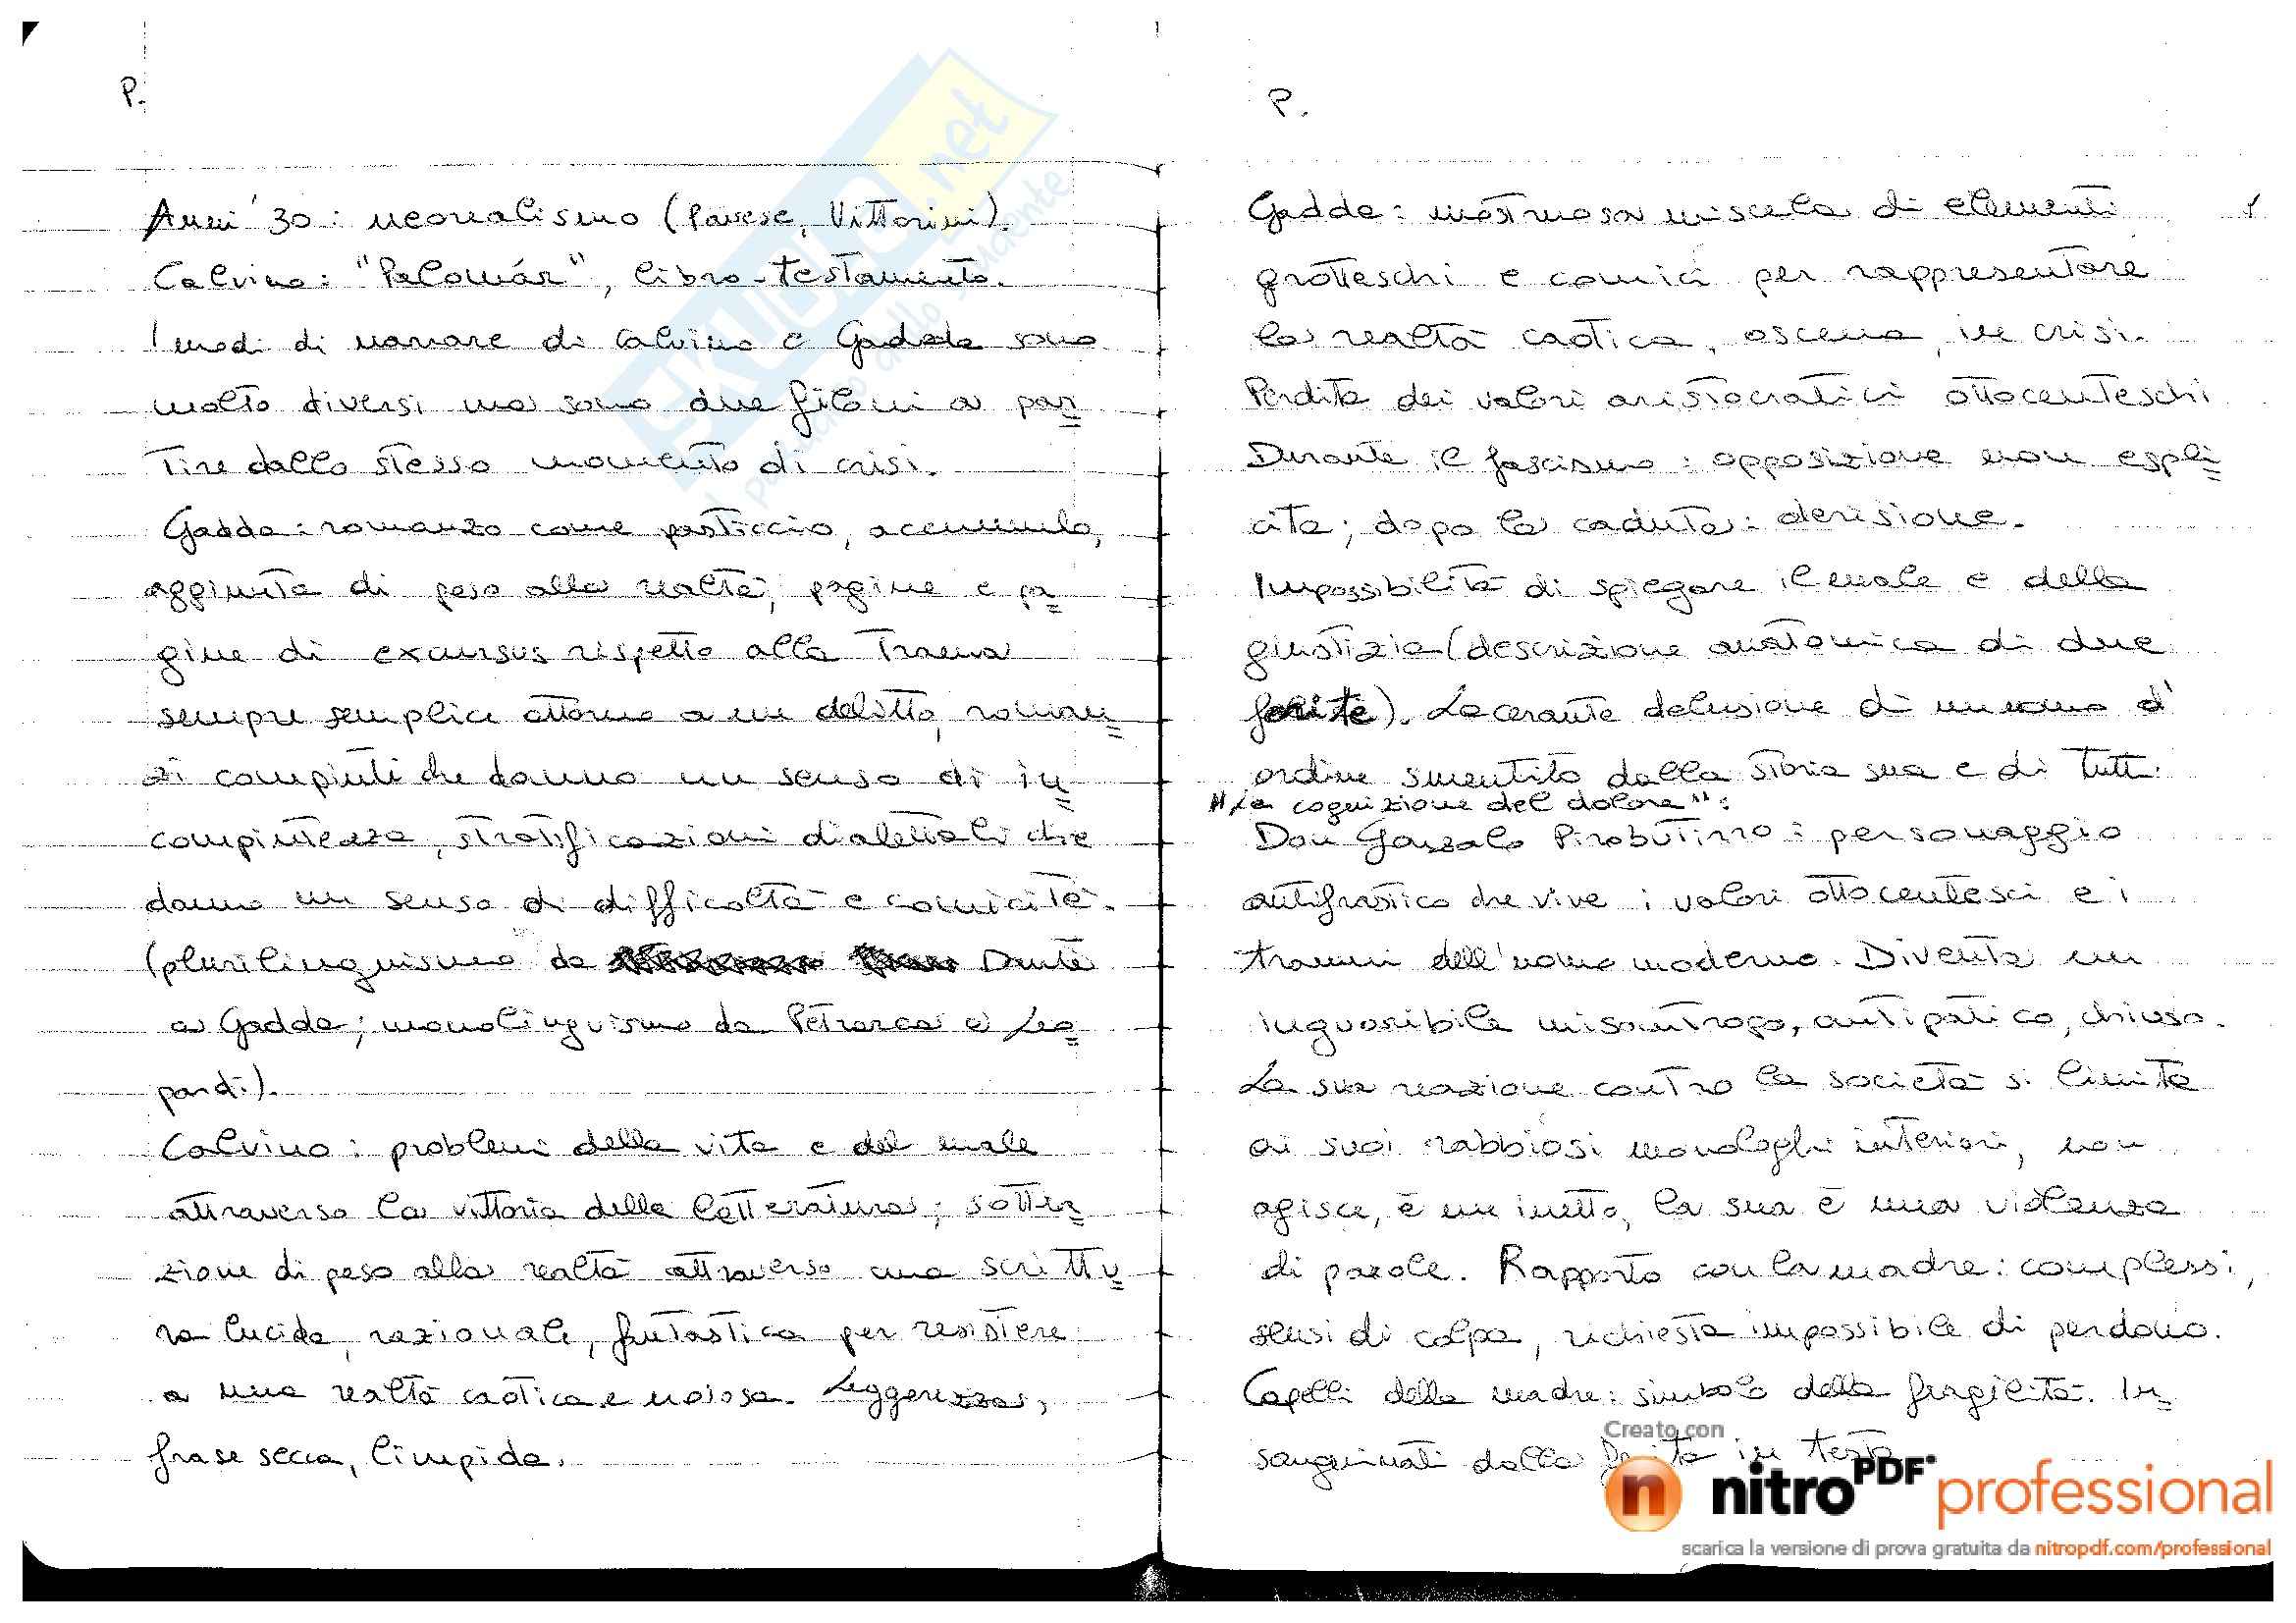 P.
Anni '30: neorealismo (Pavese, Vittorini).
Calvino: "Palomár", libro-testamento.
I modi di narrare di Calvino e Gadda sono
molto diversi ma sono due filoni a par
tire dallo stesso momento di crisi.
Gadda: romanzo come pasticcio, accumulo,
aggiunta di peso alla realtà, pagine e pa
gine di excursus rispetto alla trama
sempre semplice attorno a un delitto, roman
zi compiuti che danno un senso di in
compiutezza, stratificazioni dialettali che
danno un senso di difficoltà e comicità.
(plurilinguismo da Dante
a Gadda; monolinguismo da Petrarca a Leo
pardi).
Calvino: problemi della vita e del male
attraverso la vittoria della letteratura; sottra
zione di peso alla realtà attraverso una scrittu
ra lucida, razionale, fantastica per resistere
a una realtà caotica e noiosa. Leggerezza,
frase secca, limpida.
P.
Gadda: mostruosa miscela di elementi
grotteschi e comici per rappresentare
la realtà caotica, oscena, in crisi.
Perdita dei valori aristocratici ottocenteschi
Durante il fascismo: opposizione non espli
cita; dopo la caduta: derisione.
Impossibilità di spiegare il male e della
giustizia (descrizione anatomica di due
ferite). Lacerante delusione di un uomo d'
ordine smentito dalla storia sua e di tutti.
"La cognizione del dolore":
Don Gonzalo Pirobutirro: personaggio
antifrastico che vive i valori ottocentesci e i
traumi dell'uomo moderno. Diventa un
inguaribile misantropo, antipatico, chiuso.
La sua reazione contro la società si limita
ai suoi rabbiosi monologhi interiori, non
agisce, è un inetto, la sua è una violenza
di parole. Rapporto con la madre: complessi,
sensi di colpa, richiesta impossibile di perdono.
Capelli della madre: simbolo della fragilità. In
sanguinati dalla ferita in testa
SKUOLA.net
Creato con
nitroPDF professional
scarica la versione di prova gratuita da nitropdf.com/professional